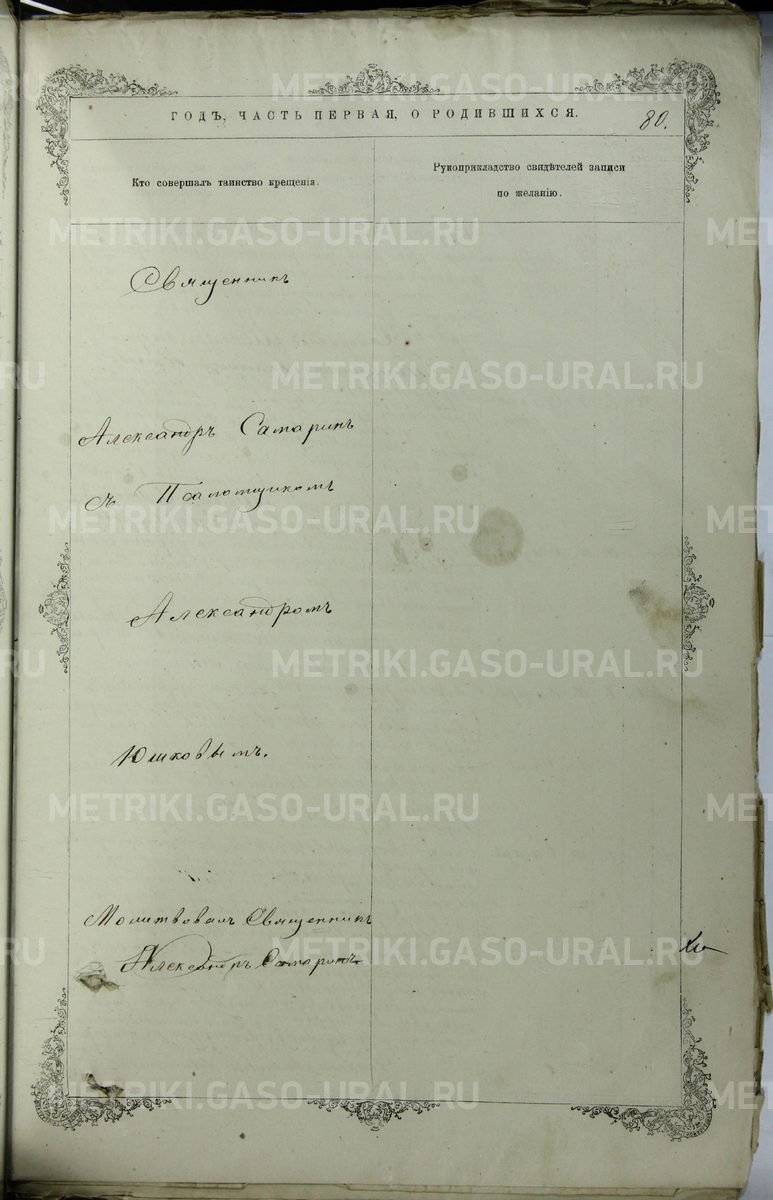 ГОДЪ, ЧАСТЬ ПЕРВАЯ, О РОДИВШИХСЯ.
80.
Кто совершалъ таинство крещенія.
Рукоприкладство свидѣтелей записи
по желанію.
Священникъ
Александръ Самаринъ
съ Псаломщикомъ
Александромъ
Юшковымъ.
Молитвовалъ Священникъ
Александръ Самаринъ
METRIKI.GASO-URAL.RU